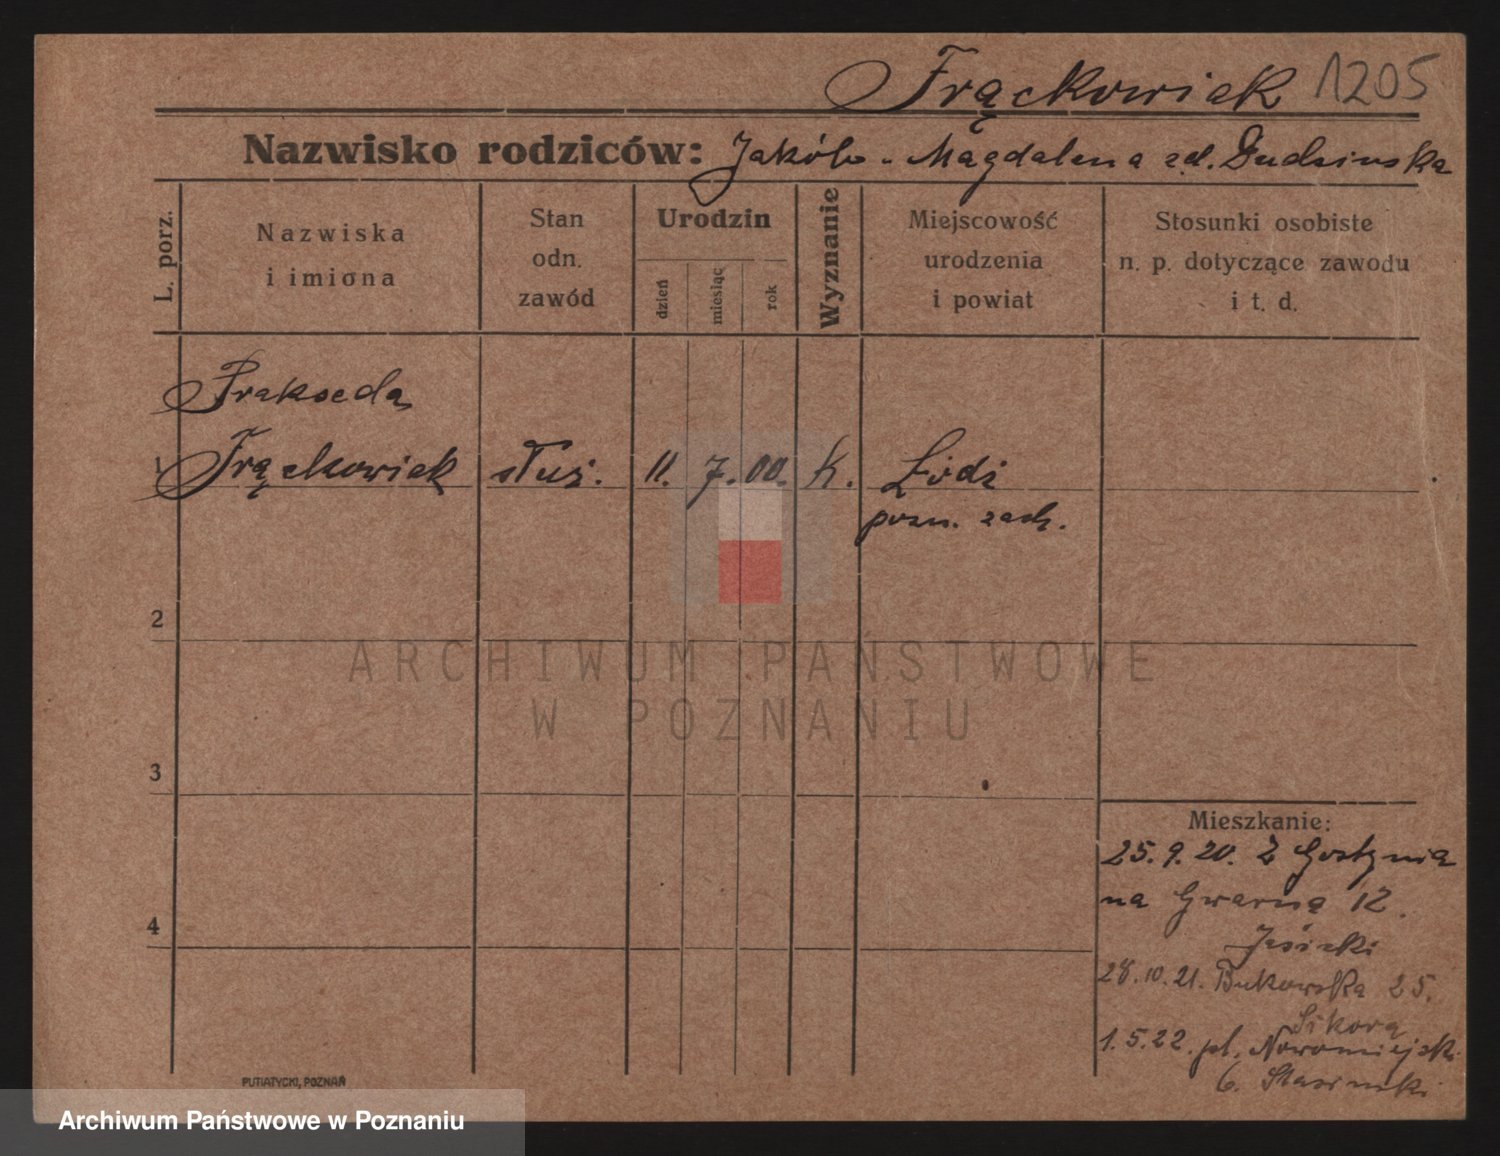 Frąckowiak 1205
Nazwisko rodziców: Jakób - Magdalena zd. Dudzinska
L. porz.
Nazwiska
i imiona
Stan
odn.
zawód
Urodzin
dzień
miesiąc
rok
Wyznanie
Miejscowość
urodzenia
i powiat
Stosunki osobiste
n. p. dotyczące zawodu
i t. d.
Prakseda
1 Frąckowiak służ. 11. 7. 00. K. Łódź
pozn. zach.
2
ARCHIWUM PAŃSTWOWE
W POZNANIU
3
Mieszkanie:
25.9.20. Z Gostynia
na Gwarną 12.
4
28.10.21. Bukowska 25.
Sikora
1.5.22. pl. Nowomiejski
6.
PUTIATYCKI, POZNAŃ
Archiwum Państwowe w Poznaniu